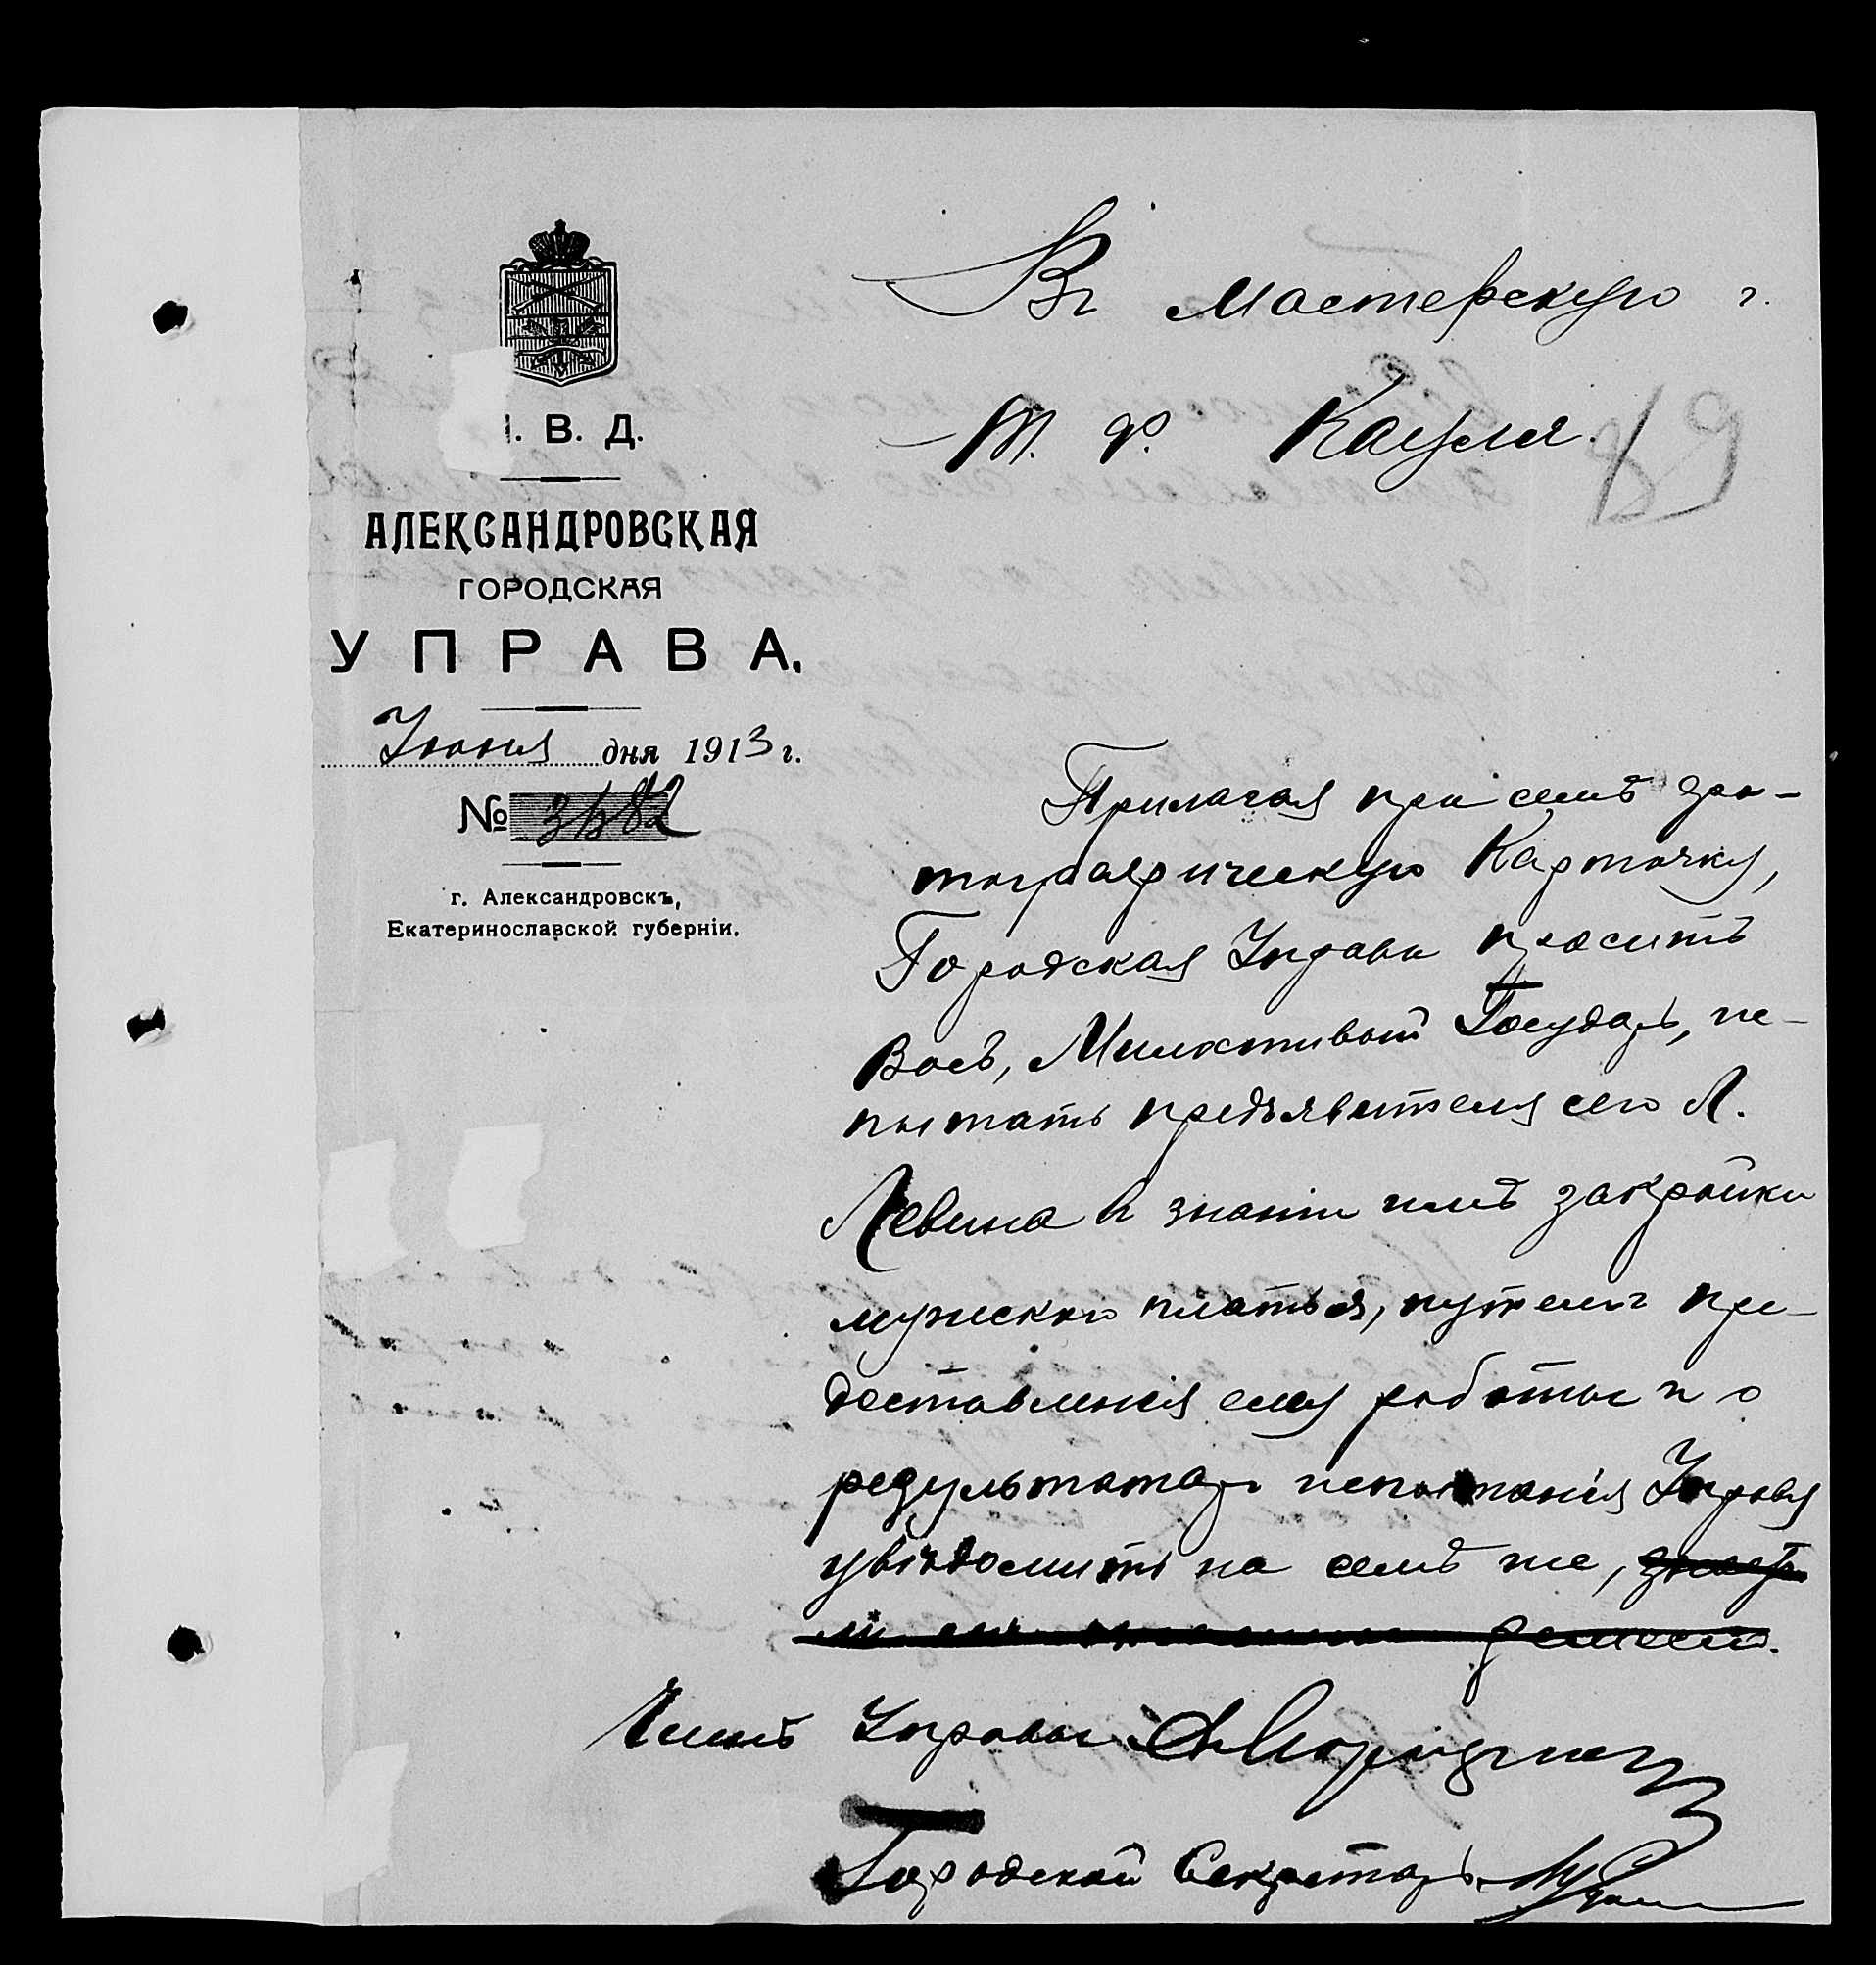 В. Д.
АЛЕКСАНДРОВСКАЯ
ГОРОДСКАЯ
УПРАВА.
Июня дня 1913 г.
№ 3482
г. Александровскъ,
Екатеринославской губерніи.
Въ Мастерскую г.
Т. Ф.
89
Прилагая при семъ фо-
тографическую карточку,
Городская Управа проситъ
Васъ, Милостивый Государь, ис-
пытать предъявителя сего Л.
Левина въ знаніи имъ закройки
мужского платья, путемъ пре-
доставленія ему работы и о
результатахъ испытанія Управу
увѣдомить на семъ же,
Членъ Управы
Городской Секретарь